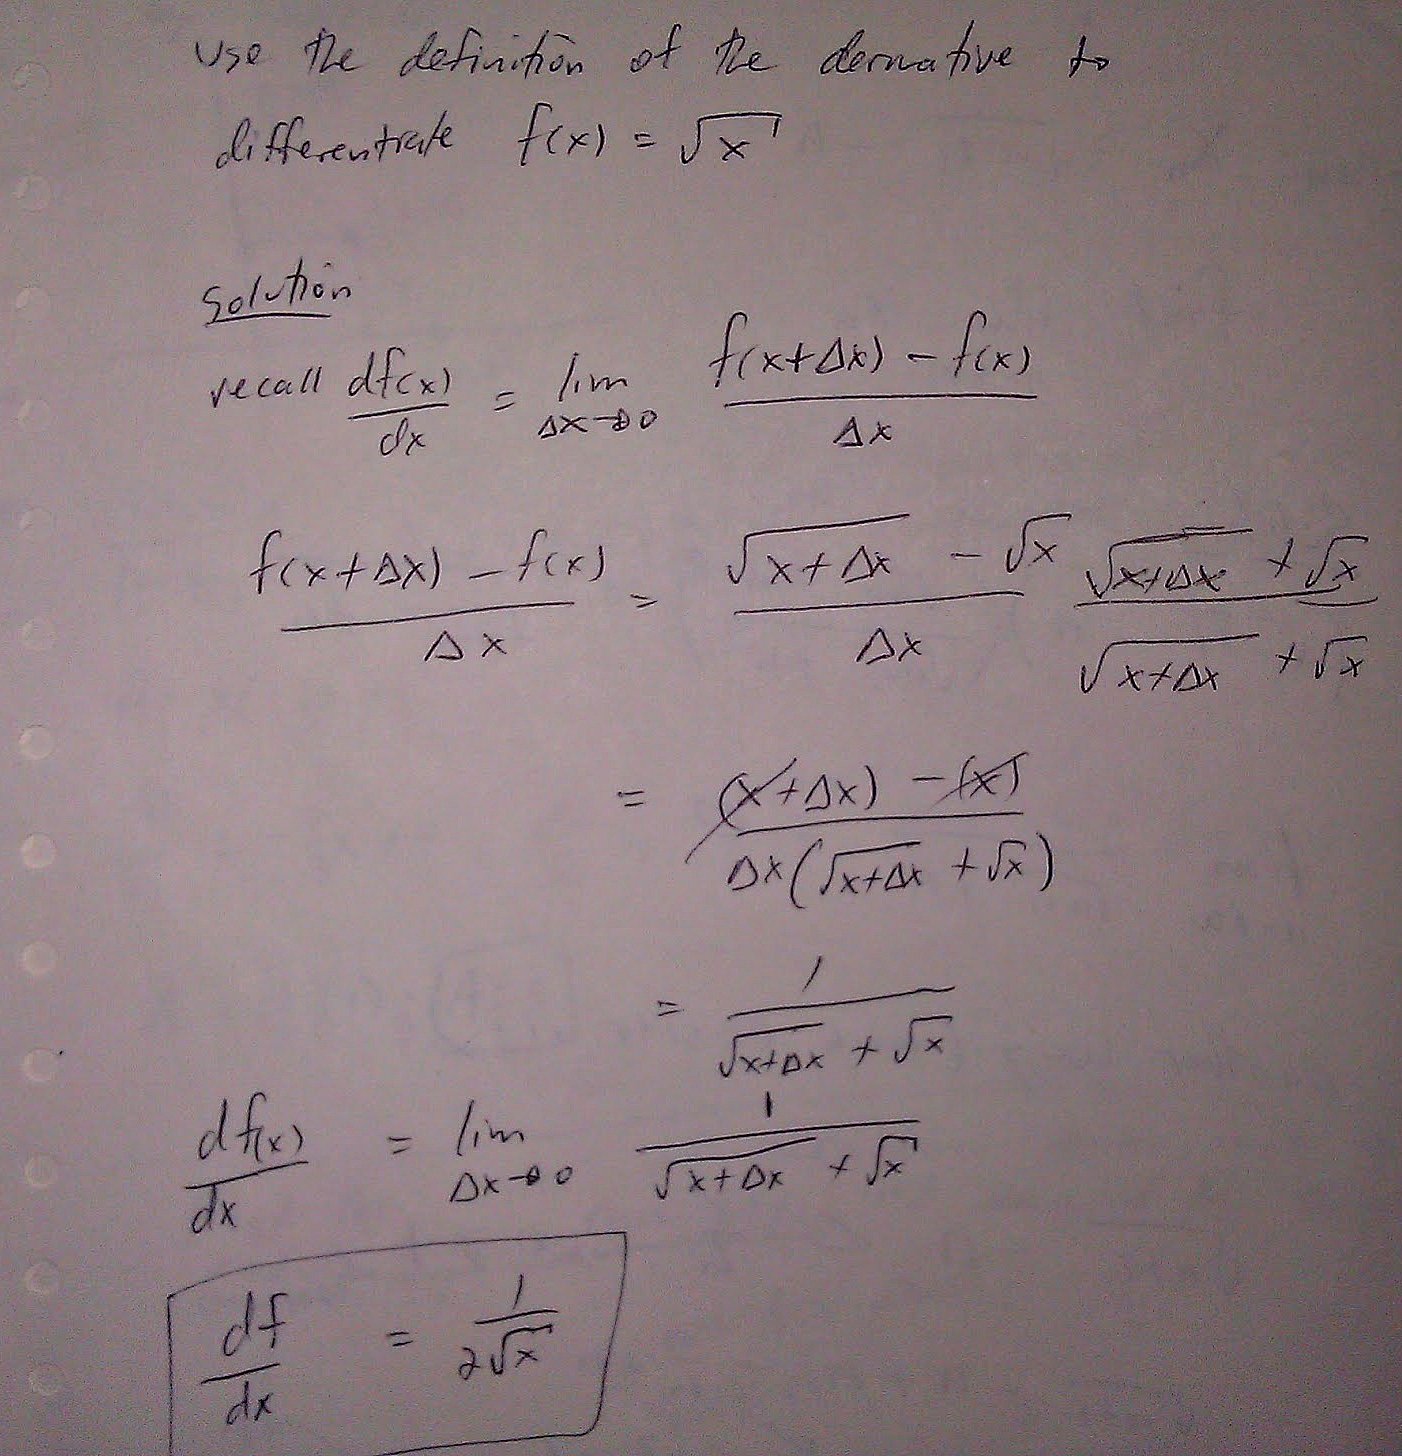 Use the definition of the derivative to
differentiate f(x) = √x
Solution
recall df(x)/dx = lim Δx→0 (f(x+Δx) - f(x))/Δx
(f(x+Δx) - f(x))/Δx = (√(x+Δx) - √x)/Δx (√(x+Δx) + √x)/(√(x+Δx) + √x)
= ((x+Δx) - (x))/(Δx(√(x+Δx) + √x))
= 1/(√(x+Δx) + √x)
df(x)/dx = lim Δx→0 1/(√(x+Δx) + √x)
df/dx = 1/(2√x)